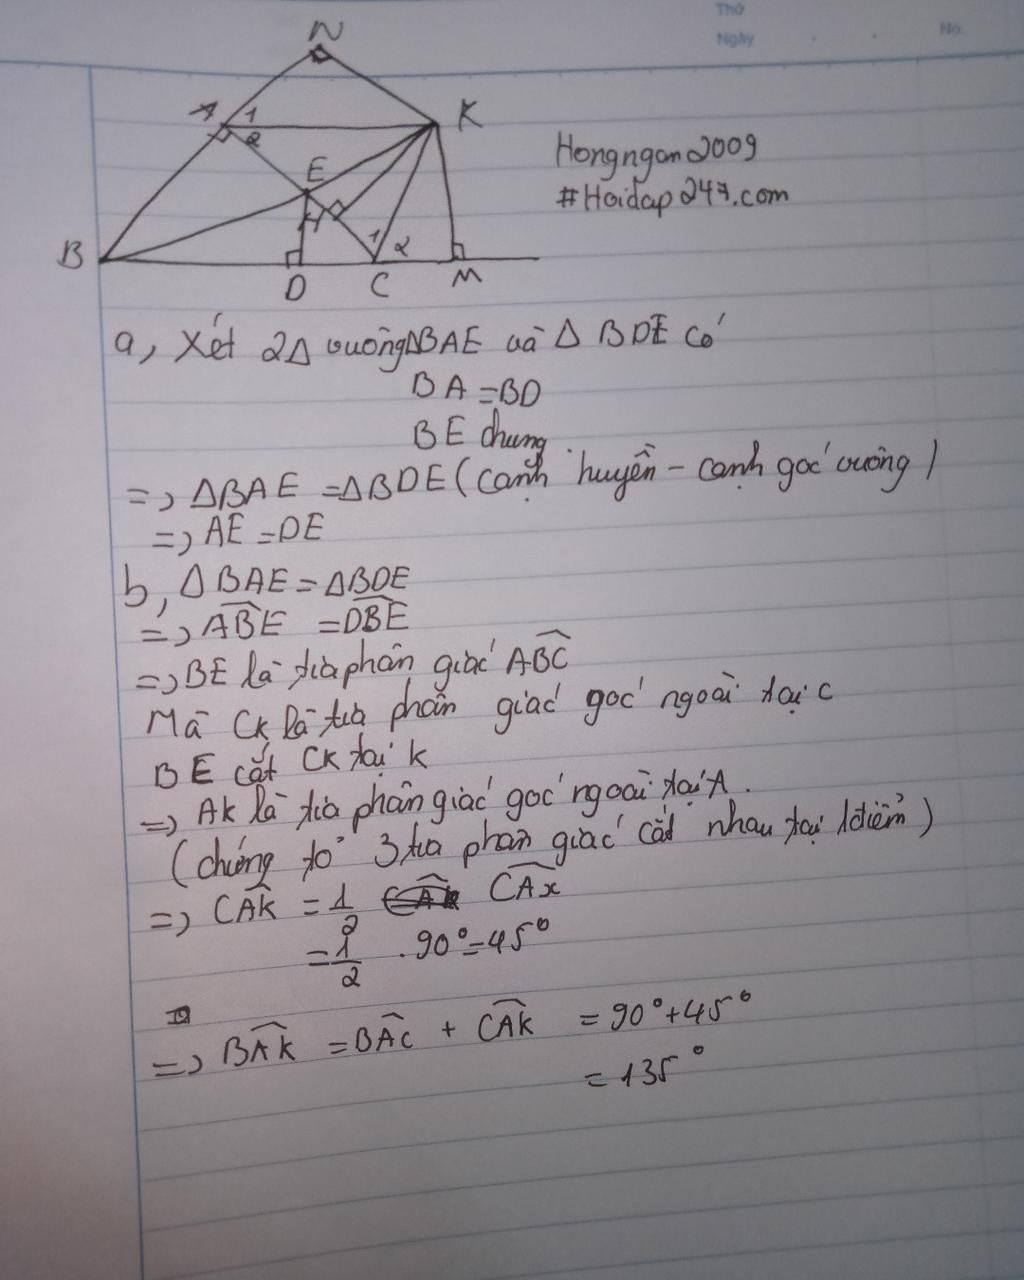 Thứ
Ngày
No.
N
A 1
2
K
E
H
B
1 2
D C M
Hongngan2009
#Hoidap247.com
a, Xét 2Δ vuông ΔBAE và Δ BDE có
BA = BD
BE chung
=> ΔBAE = ΔBDE (cạnh huyền - cạnh góc vuông)
=> AE = DE
b, ΔBAE = ΔBDE
=> \widehat{ABE} = \widehat{DBE}
=> BE là tia phân giác \widehat{ABC}
Mà CK là tia phân giác góc ngoài tại C
BE cắt CK tại K
=> AK là tia phân giác góc ngoài tại A.
(chứng tỏ 3 tia phân giác cắt nhau tại 1 điểm)
=> \widehat{CAK} = \frac{1}{2} \widehat{CAx}
= \frac{1}{2} . 90° = 45°
=> \widehat{BAK} = \widehat{BAC} + \widehat{CAK} = 90° + 45°
= 135°